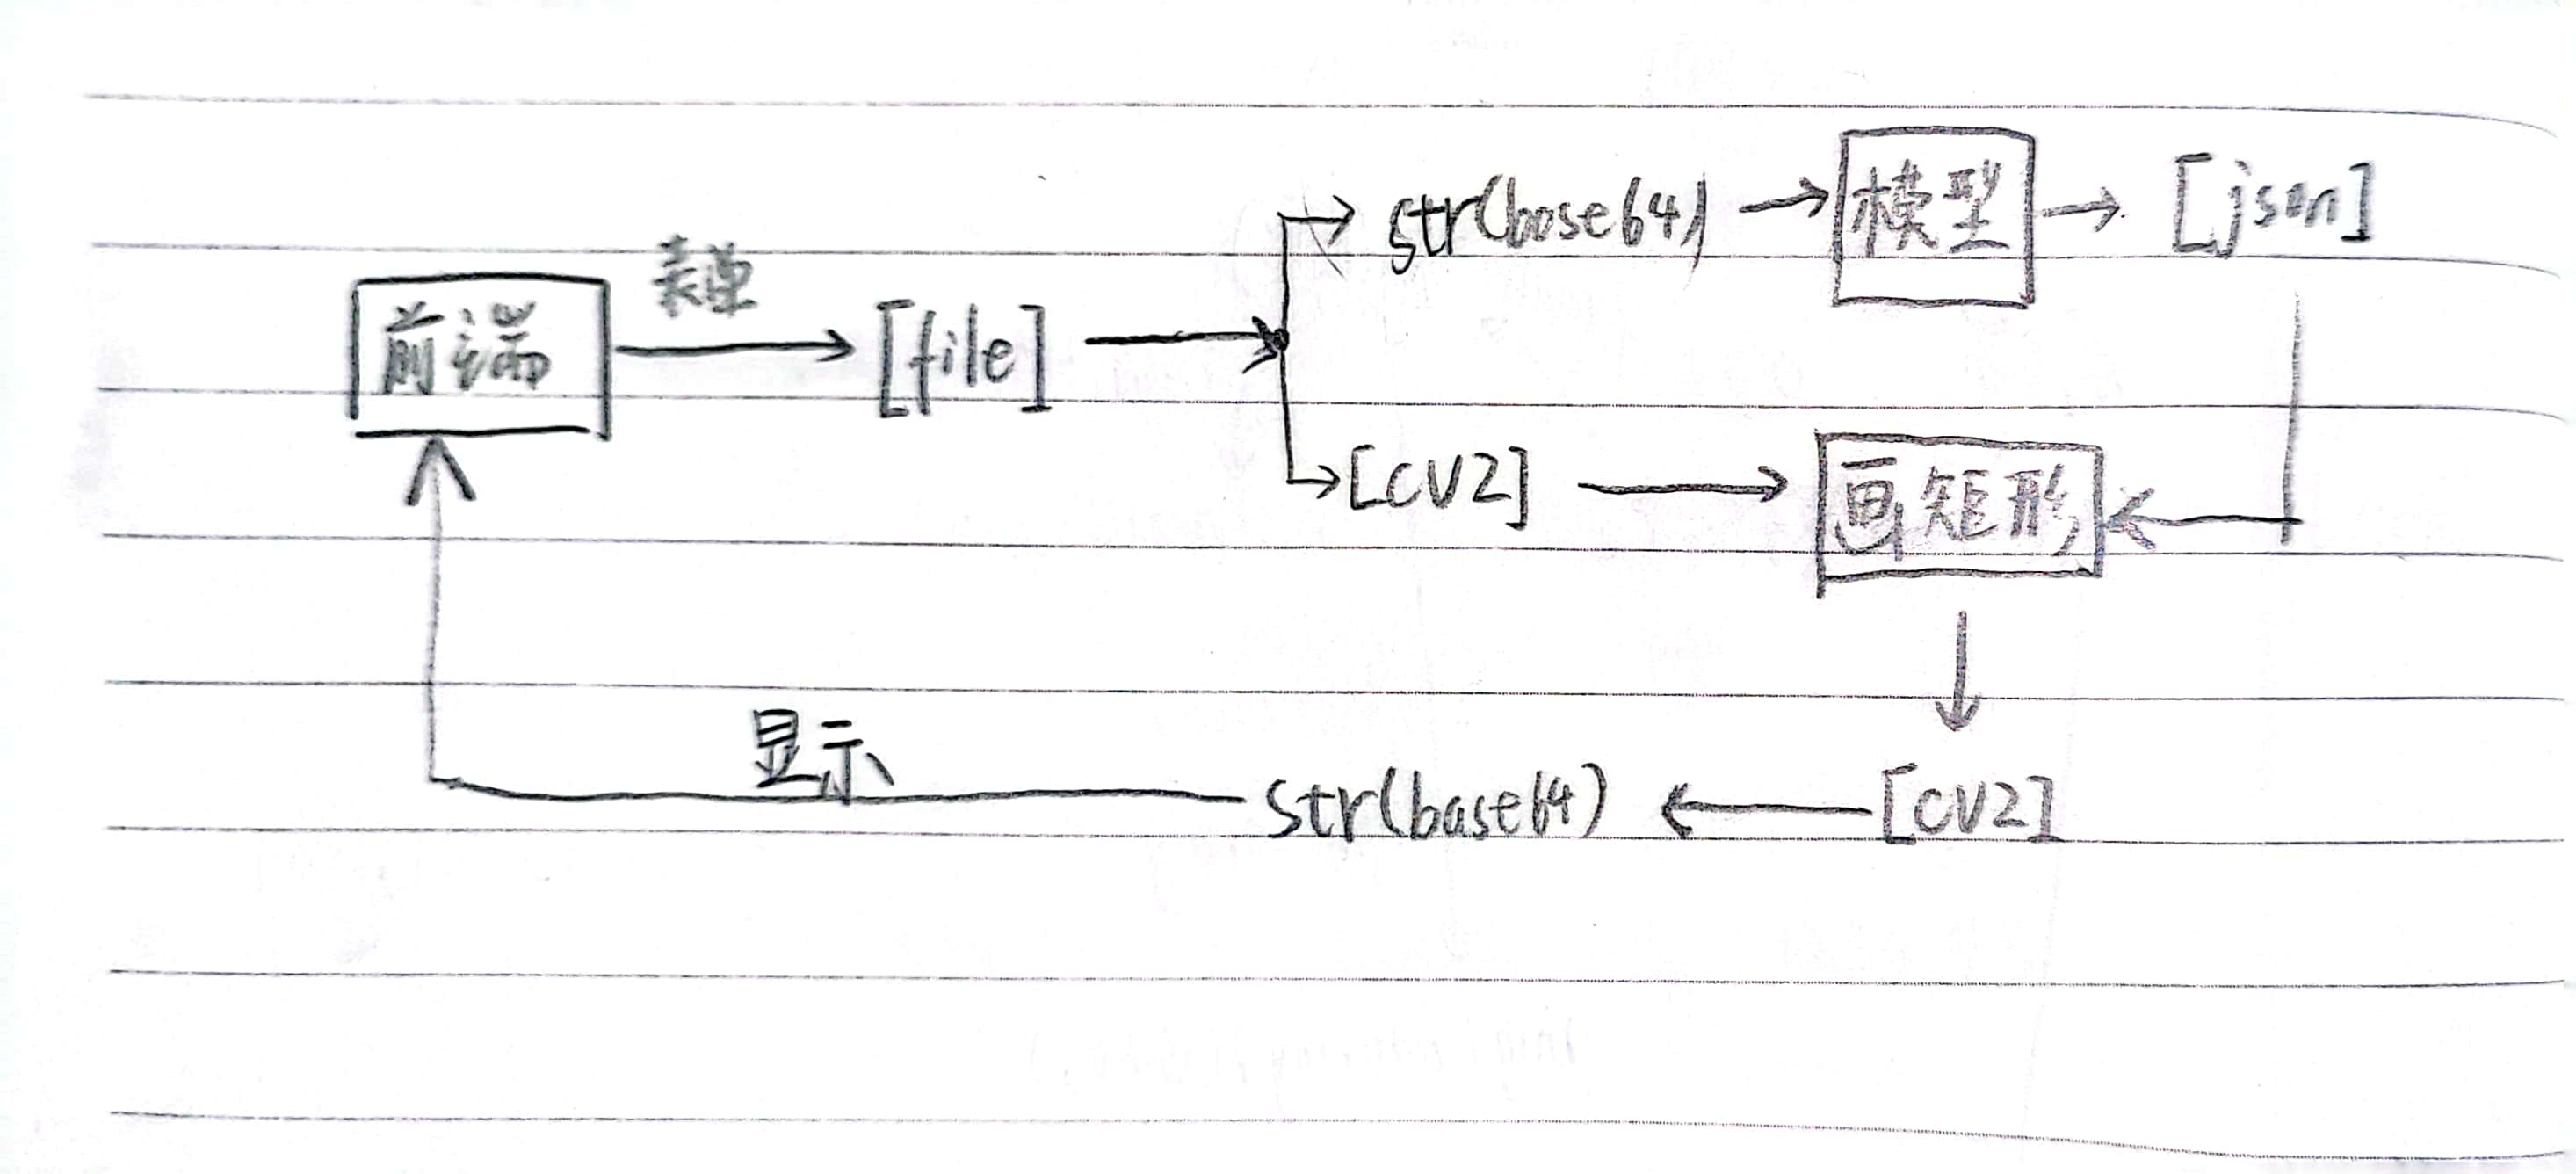 str(base64)
模型
[json]
表单
前端
[file]
[CV2]
画矩形
显示
str(base64)
[CV2]